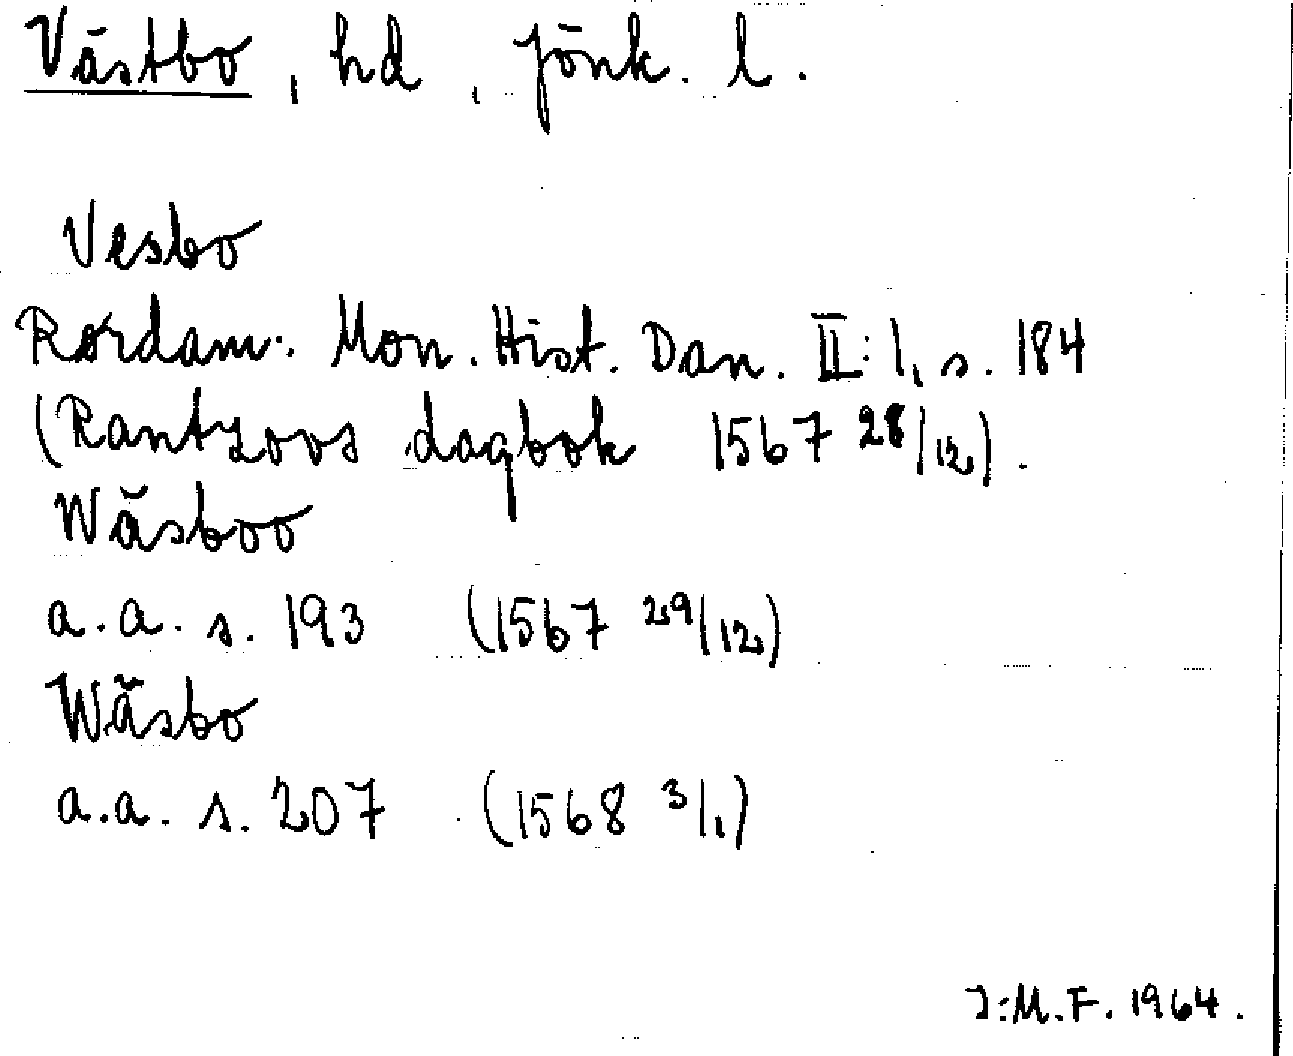 Västbo, hd, Jönk. l.
Vesbo
Rørdam: Mon. Hist. Dan. II:1, s. 184
(Rantzovs dagbok 1567 28/12).
Wäsboo
a.a. s. 193 (1567 29/12)
Wäsbo
a.a. s. 207 (1568 3/1)
I:M.F. 1964.